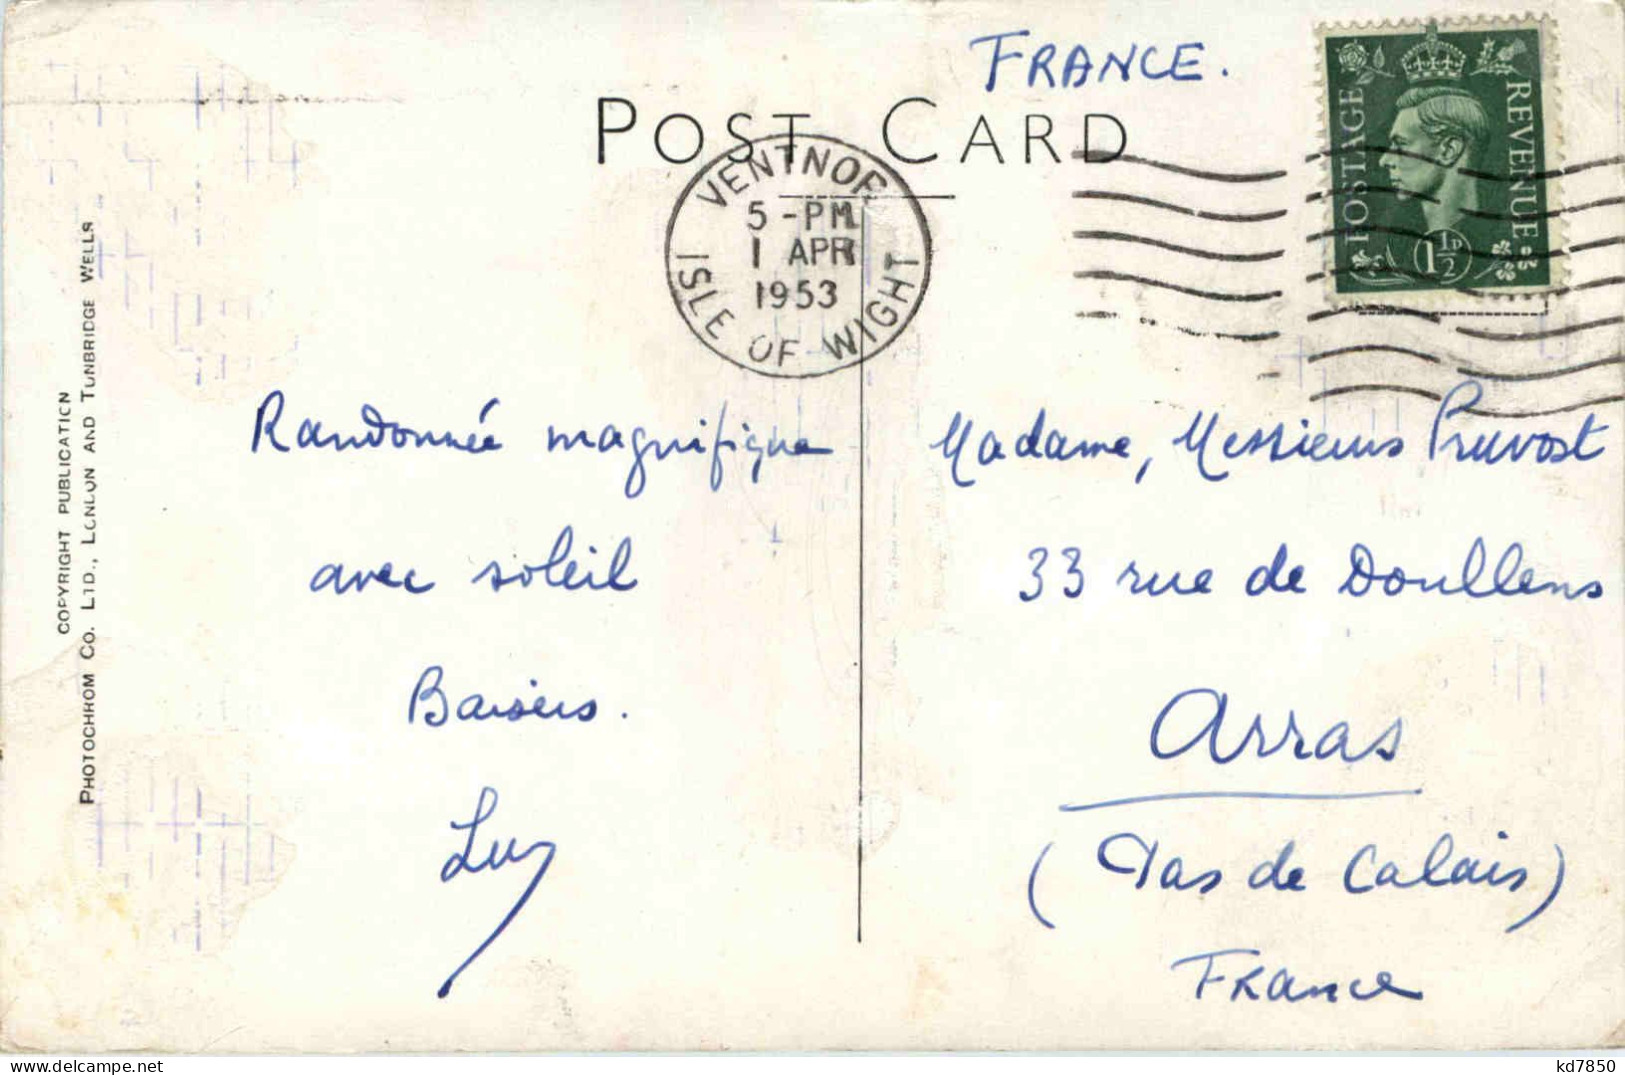 FRANCE.
POST CARD
VENTNOR
5 - PM
1 APR
1953
ISLE OF WIGHT
POSTAGE
REVENUE
1 1/2 D
COPYRIGHT PUBLICATION
PHOTOCHROM CO. LTD., LONDON AND TUNBRIDGE WELLS
Randonnée magnifique
avec soleil
Baisers.
Madame, Messieurs Pruvost
33 rue de Doullens
Arras
(Pas de Calais)
France
kd7850